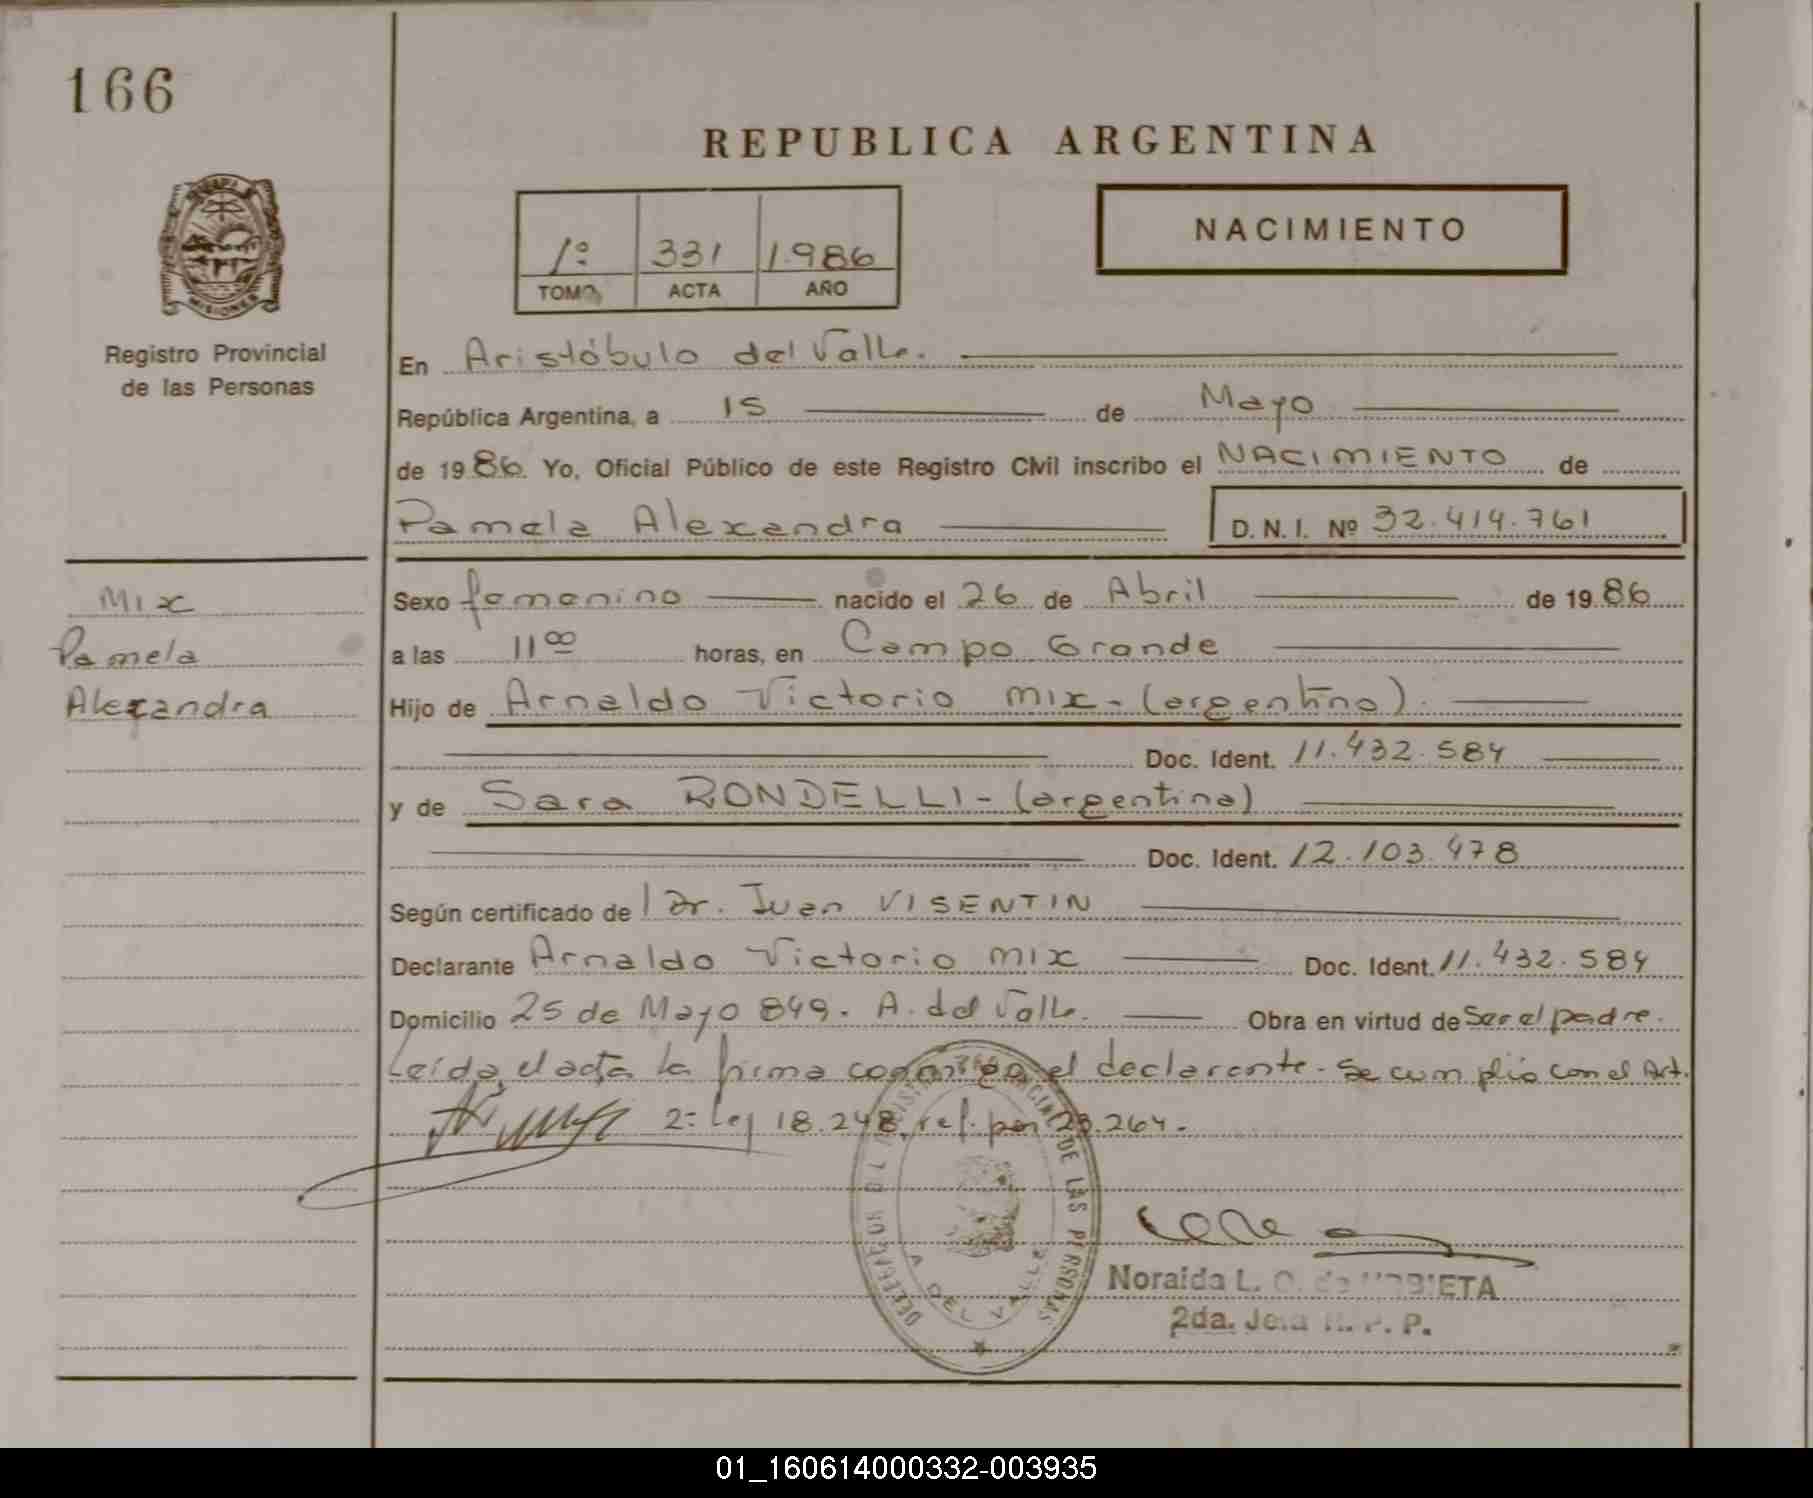 166
REPUBLICA ARGENTINA
NACIMIENTO
1º 331 1.986
TOMO ACTA AÑO
MISIONES
Registro Provincial
de las Personas
En Aristóbulo del Valle.
República Argentina, a 15 de Mayo
de 1986. Yo, Oficial Público de este Registro Civil inscribo el NACIMIENTO de
Pamela Alexandra D. N. I. Nº 32.414.761
Mix
Pamela
Alexandra
Sexo femenino nacido el 26 de Abril de 1986
a las 11 00 horas, en Campo Grande
Hijo de Arnaldo Victorio MIX - (argentino).
Doc. Ident. 11.432.584
y de Sara RONDELLI - (argentina)
Doc. Ident. 12.103.478
Según certificado de Dr. Juan VISENTIN
Declarante Arnaldo Victorio MIX Doc. Ident. 11.432.584
Domicilio 25 de Mayo 849. A. del Valle. Obra en virtud de Ser el padre.
Leída el acta la firma conmigo el declarante - Se cumplió con el Art.
2º Ley 18.248, ref. por 23.264.
DE LAS PERSONAS
A DEL VALLE
Noraida L. C. de
2da. Jefa R. P. P.
01_160614000332-003935